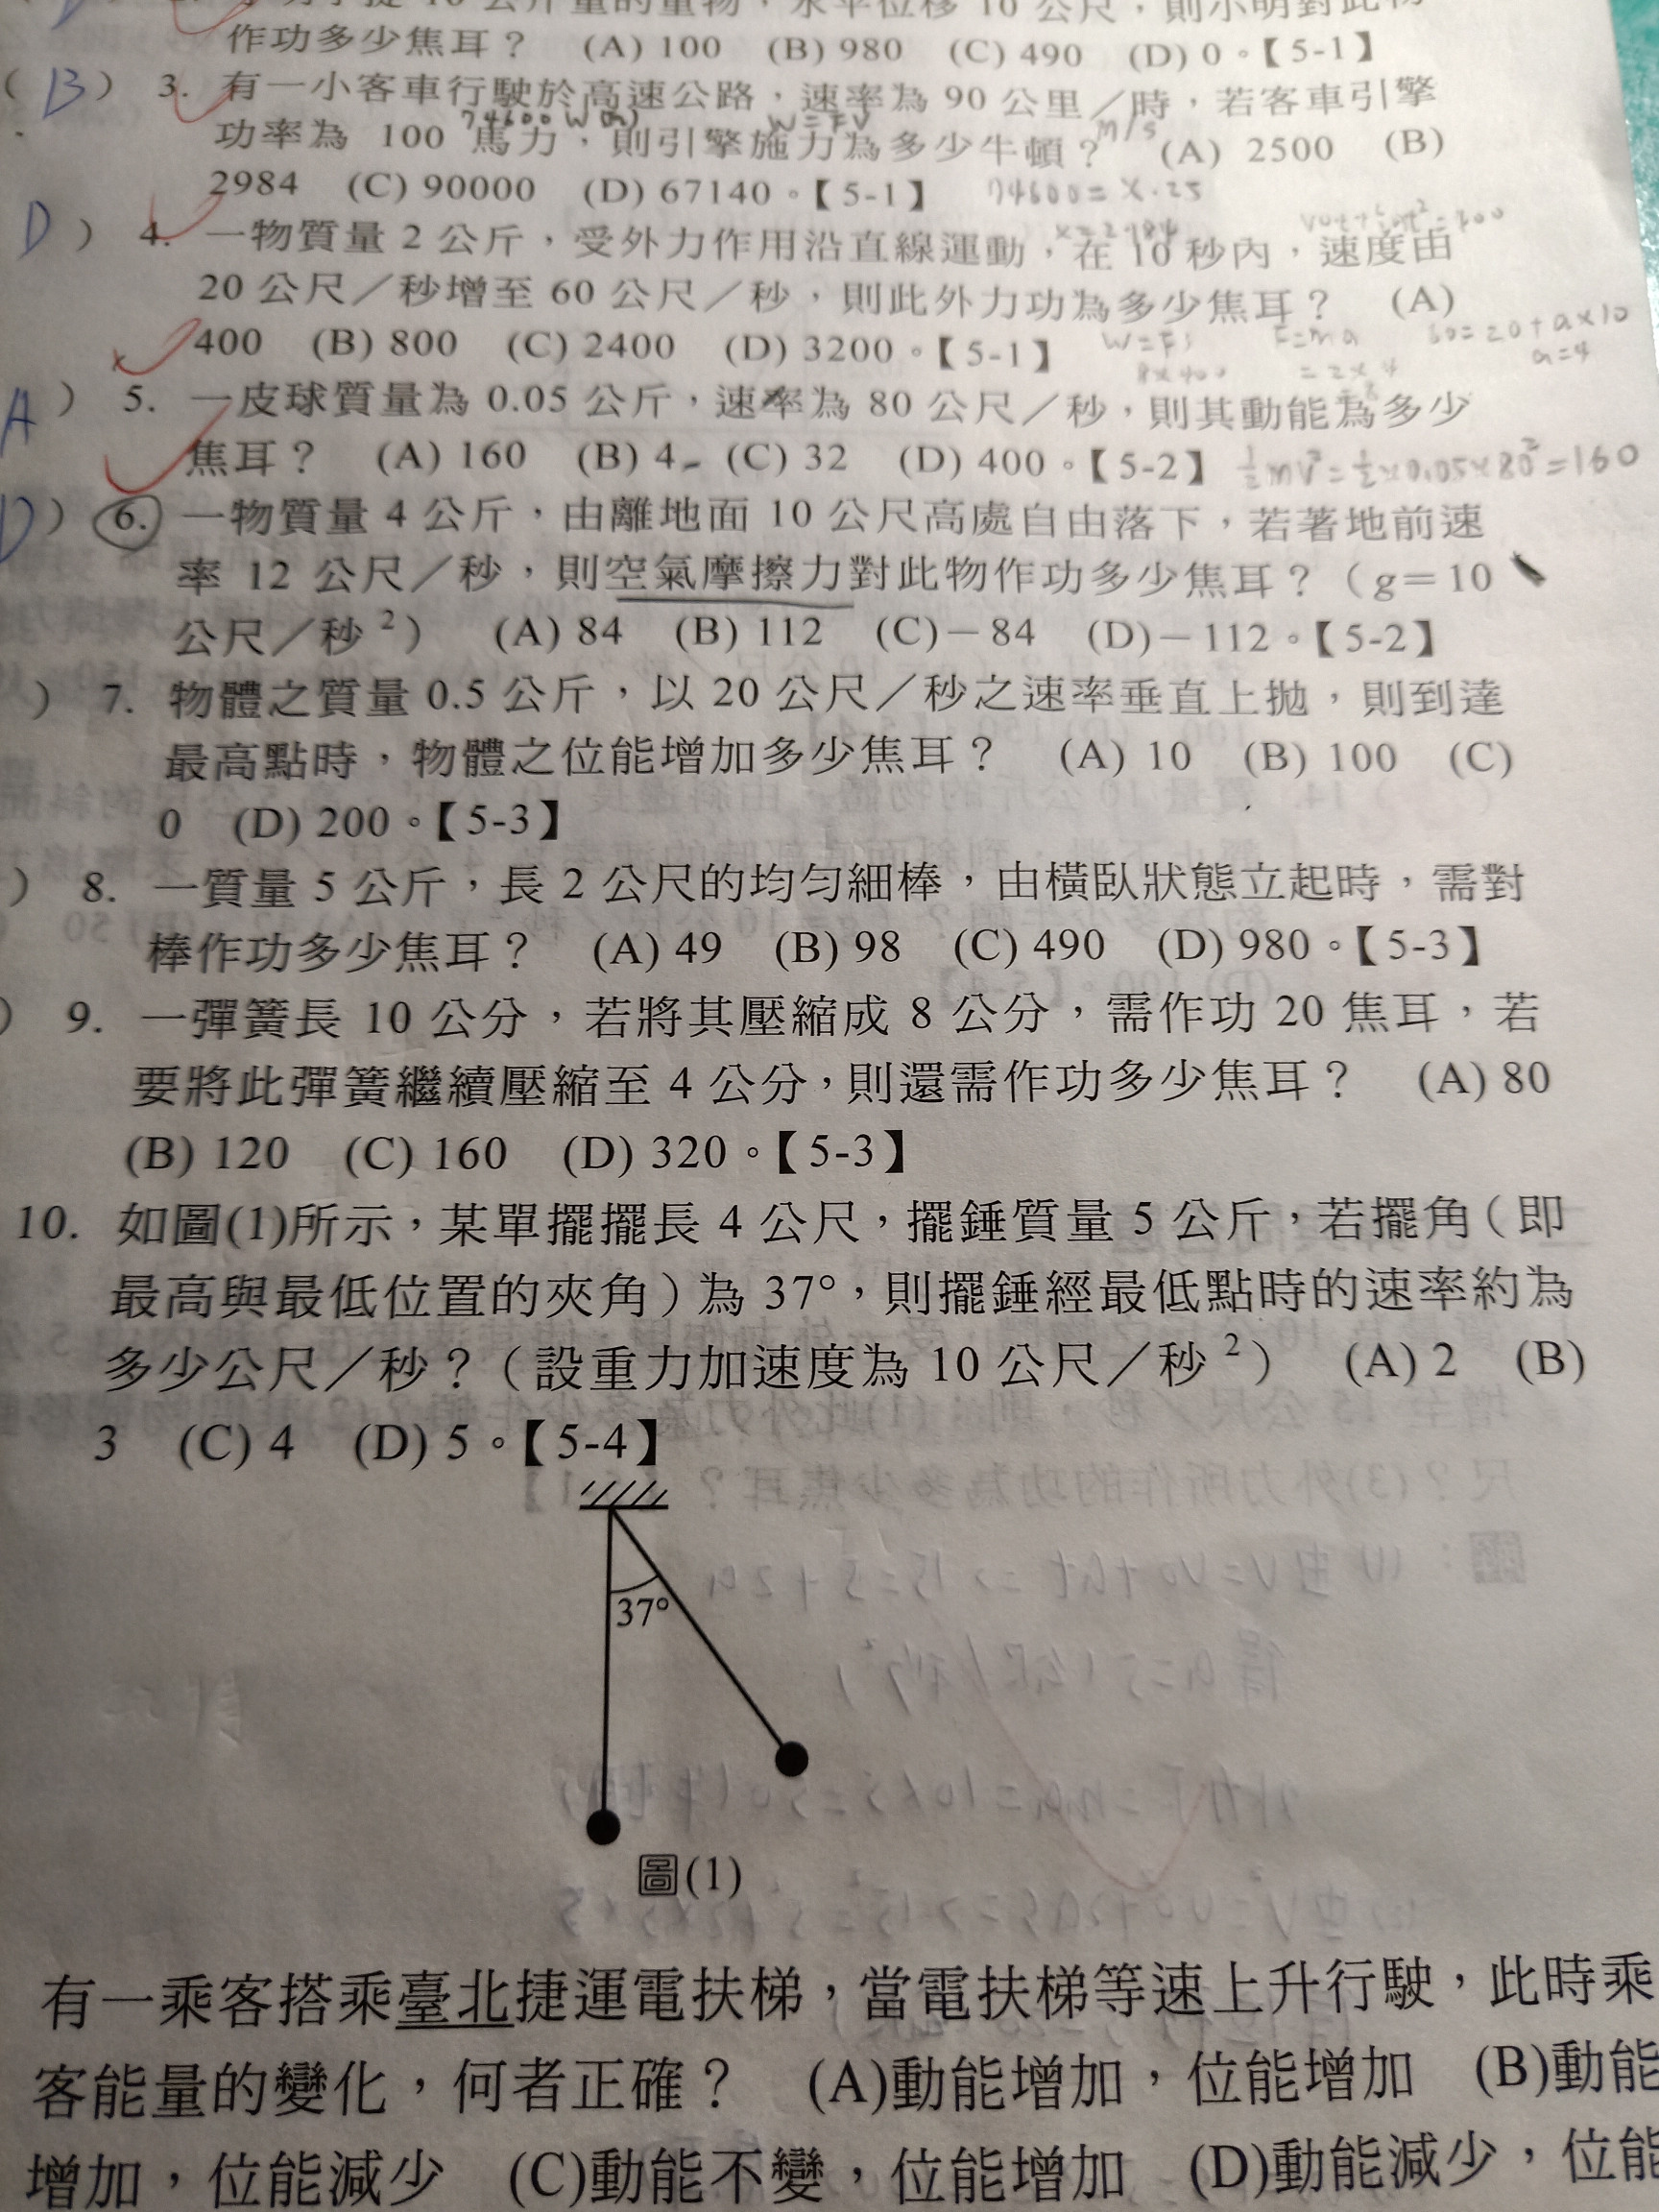 公斤重的重物，水平位移 10 公尺，則小明對此物
作功多少焦耳？ (A) 100 (B) 980 (C) 490 (D) 0。【5-1】
( B ) 3. 有一小客車行駛於高速公路，速率為 90 公里／時，若客車引擎
74600 W W=FV m/s
功率為 100 馬力，則引擎施力為多少牛頓？ (A) 2500 (B)
2984 (C) 90000 (D) 67140。【5-1】 74600=X·25
D ) 4. 一物質量 2 公斤，受外力作用沿直線運動，在 10 秒內，速度由
20 公尺／秒增至 60 公尺／秒，則此外力功為多少焦耳？ (A)
400 (B) 800 (C) 2400 (D) 3200。【5-1】 W=FS F=ma 60=20+a×10
8×400 =2×4 a=4
=8
A ) 5. 一皮球質量為 0.05 公斤，速率為 80 公尺／秒，則其動能為多少
焦耳？ (A) 160 (B) 4 (C) 32 (D) 400。【5-2】 ½mV²=½×0.05×80²=160
D ) 6. 一物質量 4 公斤，由離地面 10 公尺高處自由落下，若著地前速
率 12 公尺／秒，則空氣摩擦力對此物作功多少焦耳？（g＝10
公尺／秒²） (A) 84 (B) 112 (C)－84 (D)－112。【5-2】
) 7. 物體之質量 0.5 公斤，以 20 公尺／秒之速率垂直上拋，則到達
最高點時，物體之位能增加多少焦耳？ (A) 10 (B) 100 (C)
0 (D) 200。【5-3】
) 8. 一質量 5 公斤，長 2 公尺的均勻細棒，由橫臥狀態立起時，需對
棒作功多少焦耳？ (A) 49 (B) 98 (C) 490 (D) 980。【5-3】
) 9. 一彈簧長 10 公分，若將其壓縮成 8 公分，需作功 20 焦耳，若
要將此彈簧繼續壓縮至 4 公分，則還需作功多少焦耳？ (A) 80
(B) 120 (C) 160 (D) 320。【5-3】
10. 如圖(1)所示，某單擺擺長 4 公尺，擺錘質量 5 公斤，若擺角（即
最高與最低位置的夾角）為 37°，則擺錘經最低點時的速率約為
多少公尺／秒？（設重力加速度為 10 公尺／秒²） (A) 2 (B)
3 (C) 4 (D) 5。【5-4】
37°
圖(1)
有一乘客搭乘臺北捷運電扶梯，當電扶梯等速上升行駛，此時乘
客能量的變化，何者正確？ (A)動能增加，位能增加 (B)動能
增加，位能減少 (C)動能不變，位能增加 (D)動能減少，位能